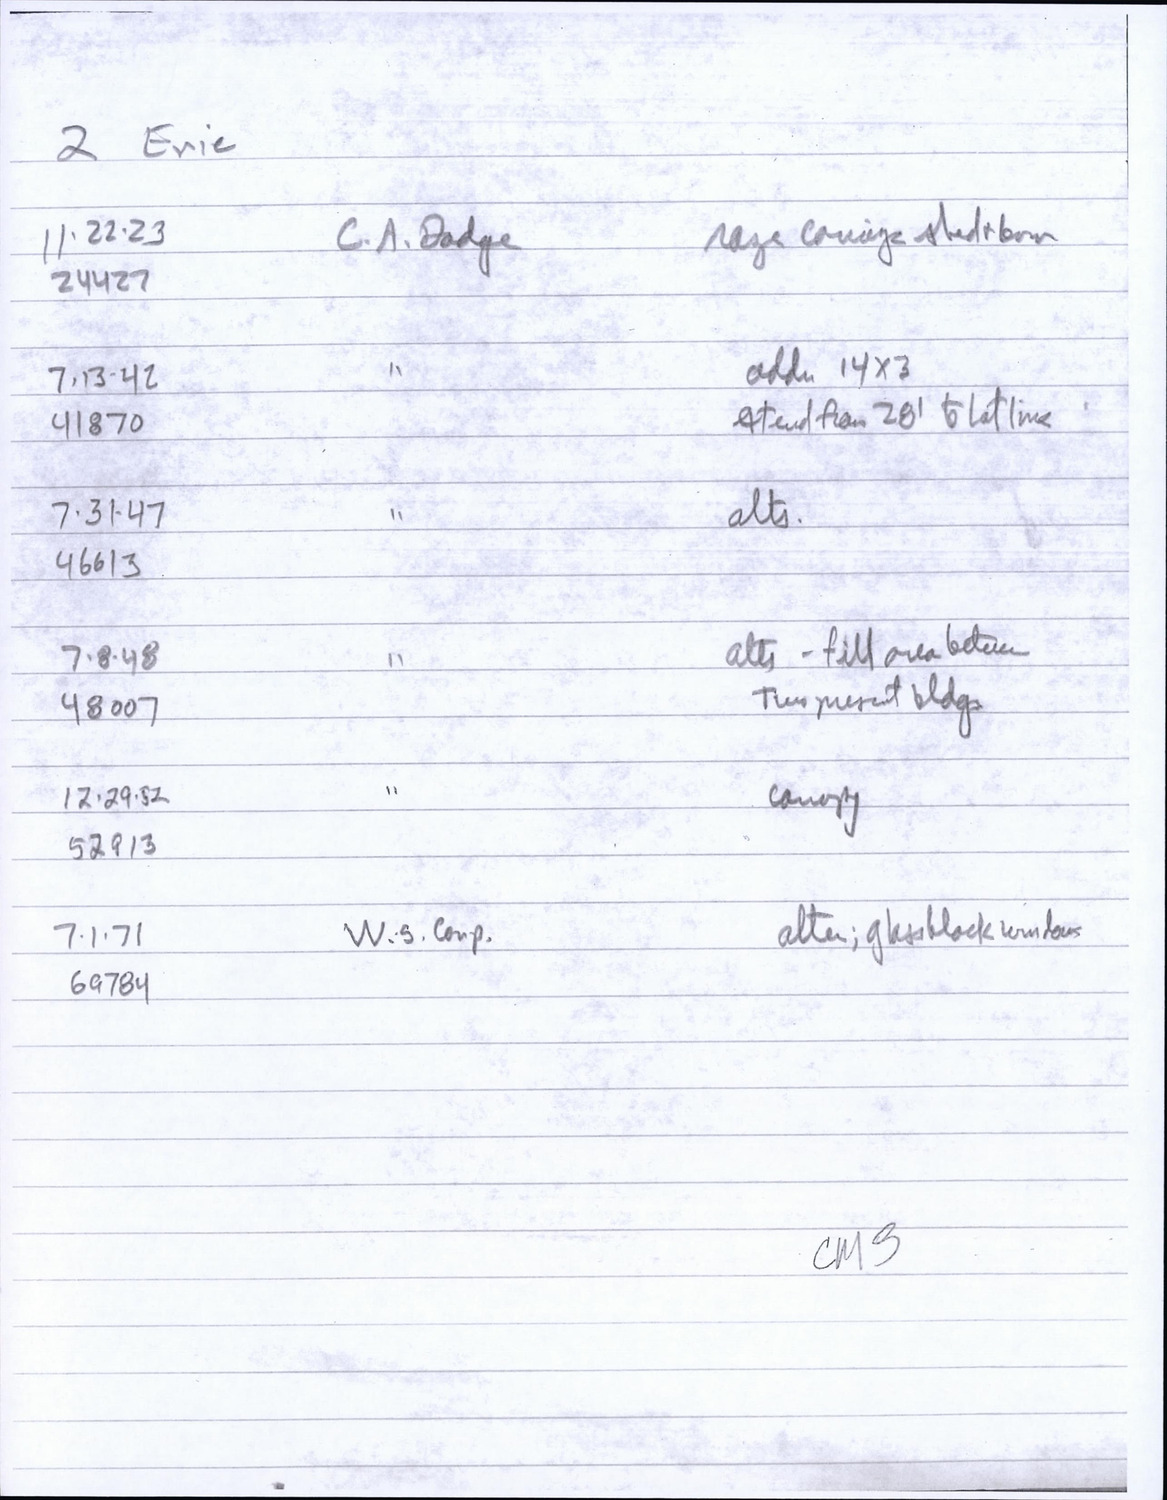 2 Erie
11.22.23 C. A. Dodge raze carriage shed + barn
24427
7.13-42 " addn 14x3
41870 extend from 28' to lot line
7.31-47 " alts.
46613
7.8.48 " alts - fill area between
48007 two present bldgs
12.29.52 " canopy
52913
7.1.71 W.S. Corp. alter; glassblock windows
69784
CMS